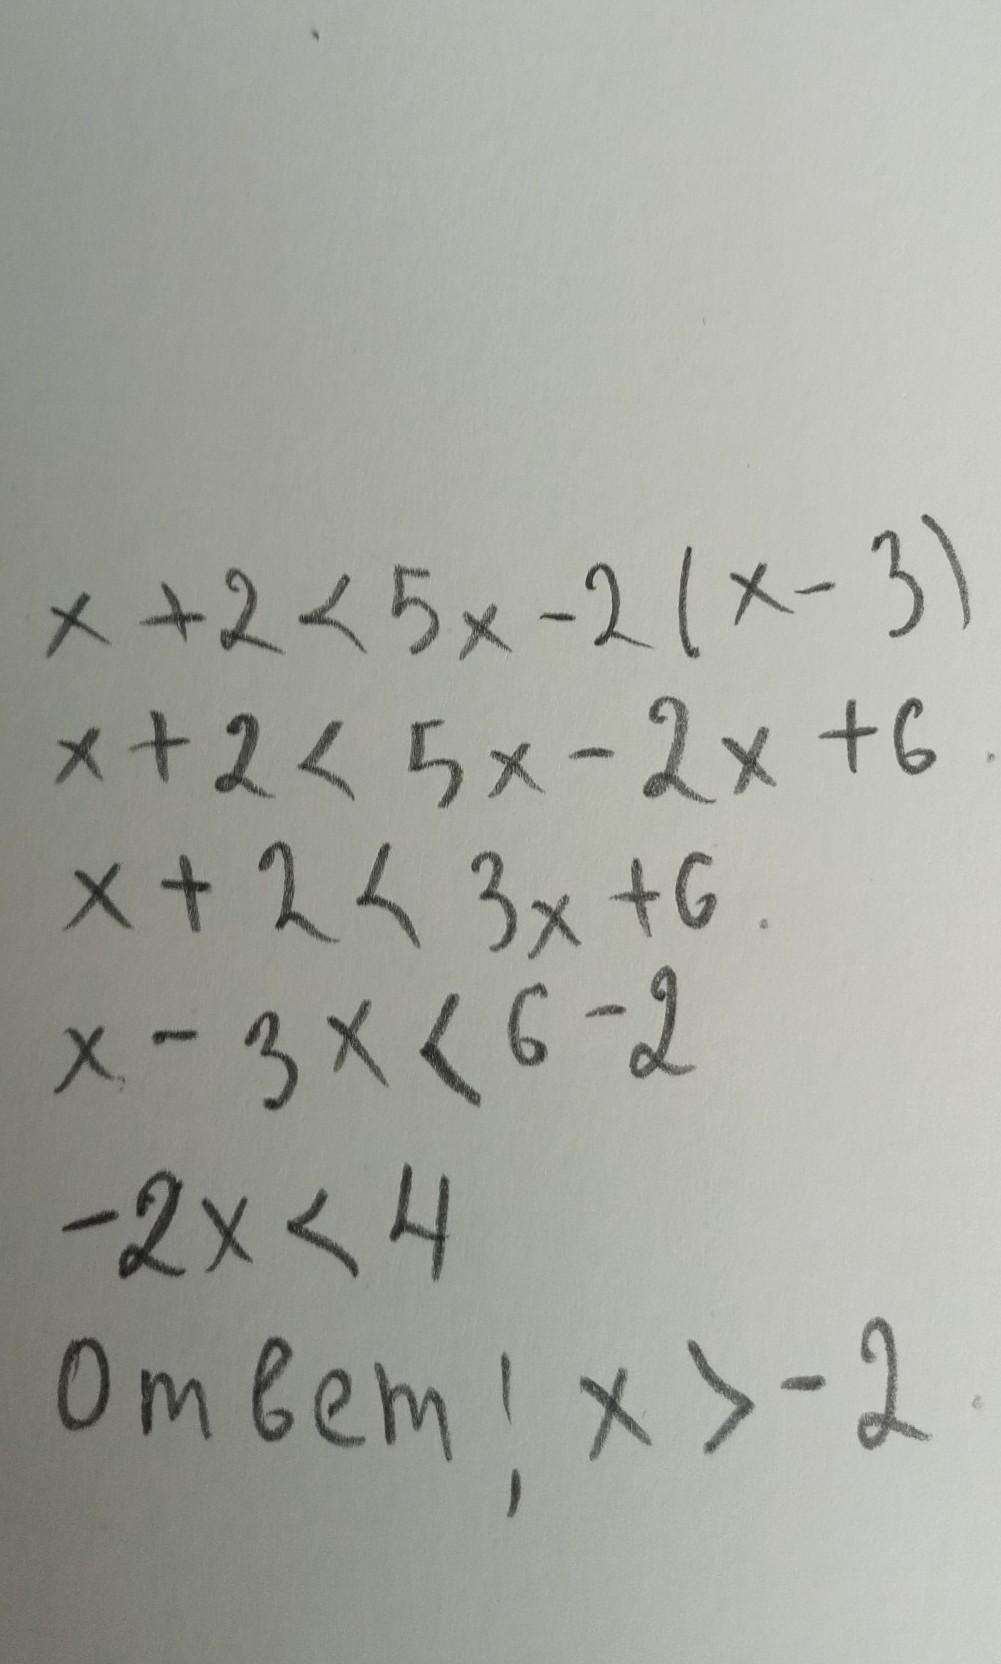 x + 2 < 5x - 2(x - 3)
x + 2 < 5x - 2x + 6
x + 2 < 3x + 6
x - 3x < 6 - 2
-2x < 4
Ответ! x > -2